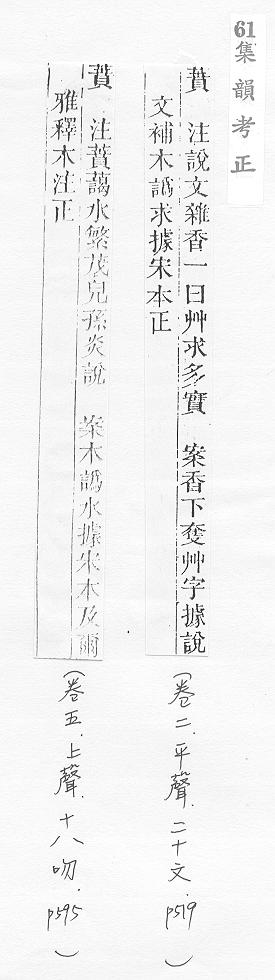 61集韻考正
蕡 注說文雜香一曰艸求多實 案香下奪艸字據說
文補木譌求據宋本正
(卷二.平聲.二十文.p519)
蕡 注蕡藹水繁茂皃孫炎說 案木譌水據宋本及爾
雅釋木注正
(卷五.上聲.十八吻.p595)